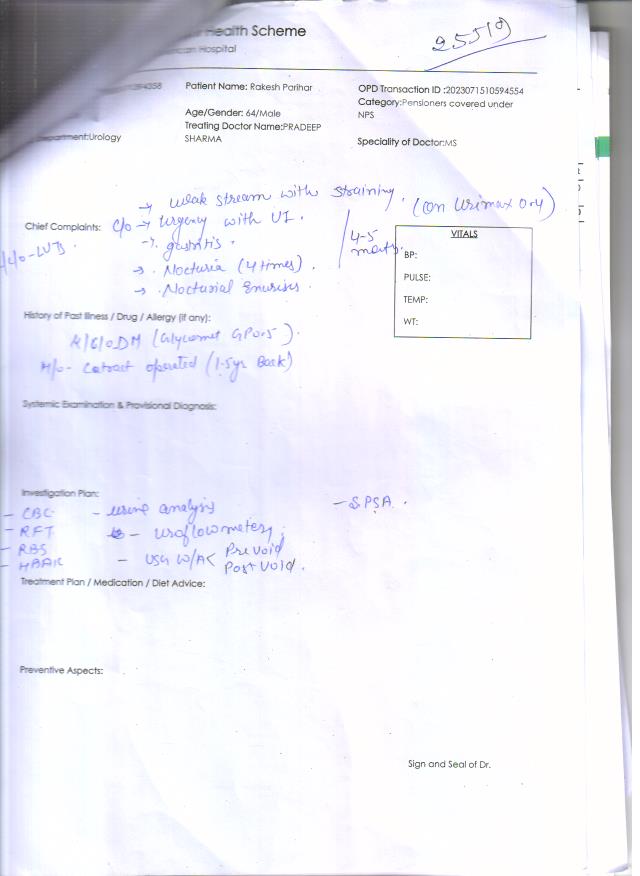 Health Scheme
Hospital
25519
Patient Name: Rakesh Parihar
OPD Transaction ID :2023071510594554
Age/Gender: 64/Male
Category:Pensioners covered under
NPS
Treating Doctor Name:PRADEEP
SHARMA
Department:Urology
Speciality of Doctor:MS
→ Weak stream with straining. (on Urimax 0.4)
Chief Complaints: C/o → Urgency with UI.
K/C/O-LUTS.
gastritis.
4-5
→ . Nocturia (4 times).
→ . Nocturnal Enuresis.
VITALS
BP:
PULSE:
TEMP:
WT:
History of Past Illness / Drug / Allergy (if any):
K/C/O DM (Glycomet GP 0.5).
H/o - Catract operated (1.5yr Back)
Systemic Examination & Provisional Diagnosis:
Investigation Plan:
- CBC - urine analysis - S.PSA.
- RFT - uroflowmetery
- RBS
- USG W/A Pre Void
Post Void.
Treatment Plan / Medication / Diet Advice:
Preventive Aspects:
Sign and Seal of Dr.